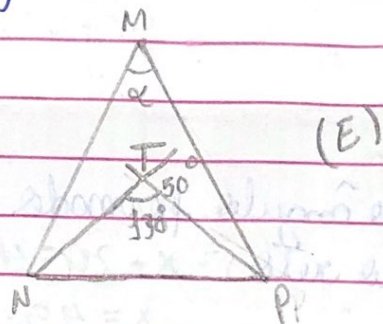 M
α
(E)
T
50°
130°
N
P